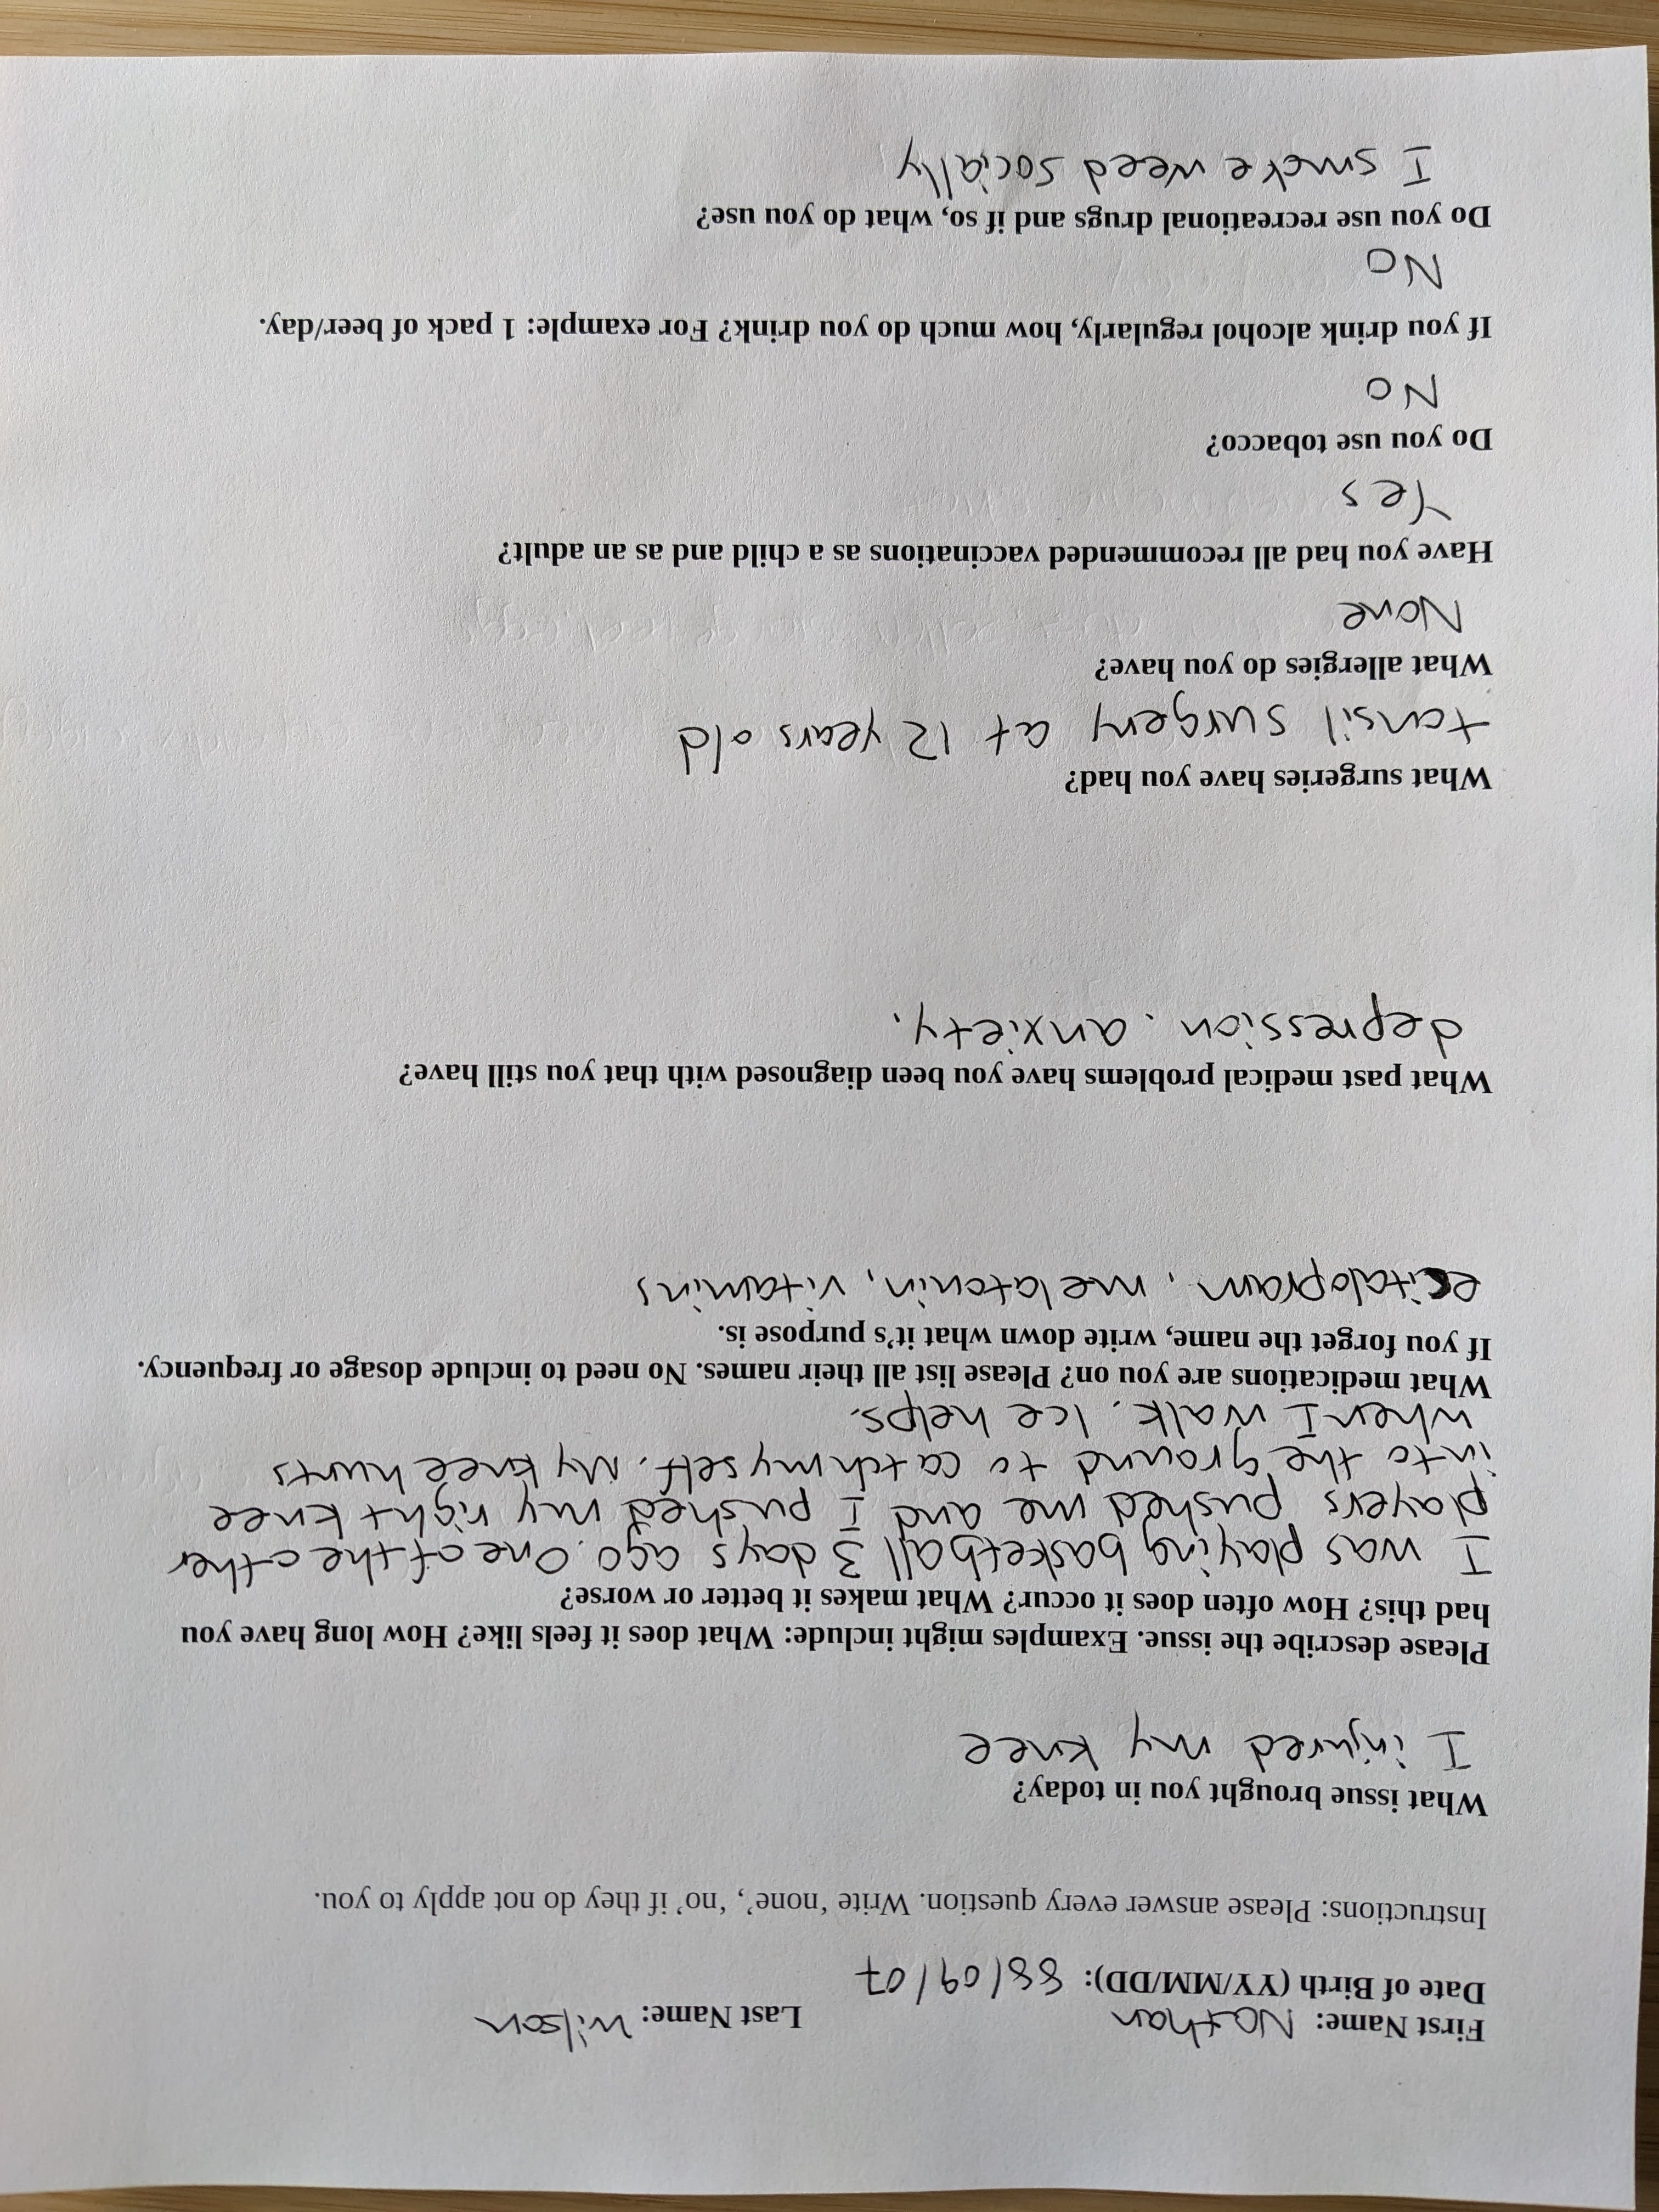 First Name: Nathan Last Name: Wilson
Date of Birth (YY/MM/DD): 88/09/07
Instructions: Please answer every question. Write ‘none’, ‘no’ if they do not apply to you.
What issue brought you in today?
I injured my knee
Please describe the issue. Examples might include: What does it feels like? How long have you
had this? How often does it occur? What makes it better or worse?
I was playing basketball 3 days ago. One of the other
players pushed me and I pushed my right knee
into the ground to catch myself. My knee hurts
when I walk. Ice helps.
What medications are you on? Please list all their names. No need to include dosage or frequency.
If you forget the name, write down what it’s purpose is.
escitalopram, melatonin, vitamins
What past medical problems have you been diagnosed with that you still have?
depression. anxiety.
What surgeries have you had?
tonsil surgery at 12 years old
What allergies do you have?
None
Have you had all recommended vaccinations as a child and as an adult?
Yes
Do you use tobacco?
No
If you drink alcohol regularly, how much do you drink? For example: 1 pack of beer/day.
No
Do you use recreational drugs and if so, what do you use?
I smoke weed socially